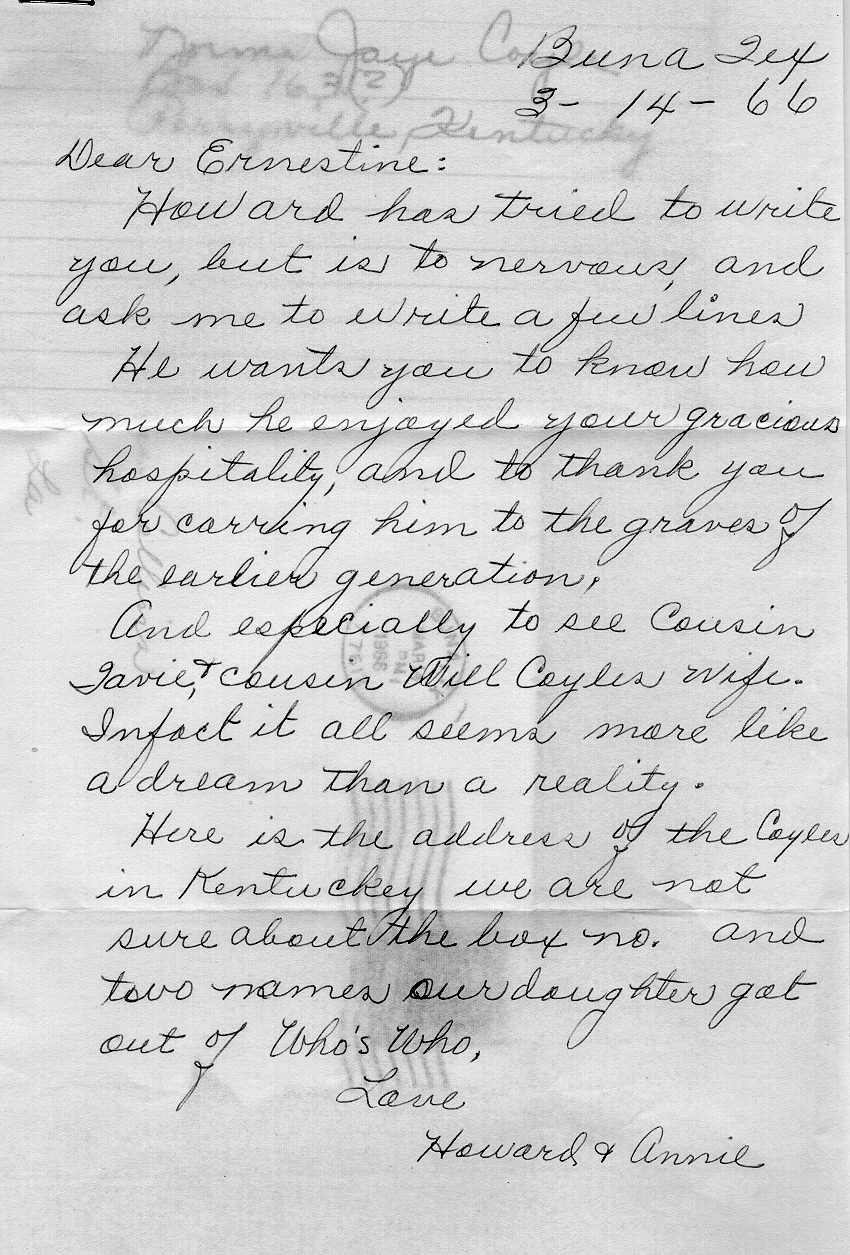 Norma Jaye Coyle
Box 163(2)
Perryville, Kentucky
Buna Tex
3-14-66
Dear Ernestine:
Howard has tried to write
you, but is to nervous, and
ask me to write a few lines
He wants you to know how
much he enjoyed your gracious
hospitality, and to thank you
for carring him to the graves of
the earlier generation,
And especially to see Cousin
Tavie, & cousin Will Coyles wife.
Infact it all seems more like
a dream than a reality.
Here is the address of the Coyles
in Kentuckey we are not
sure about the box no. and
two names our daughter got
out of Who's Who,
Love
Howard & Annie